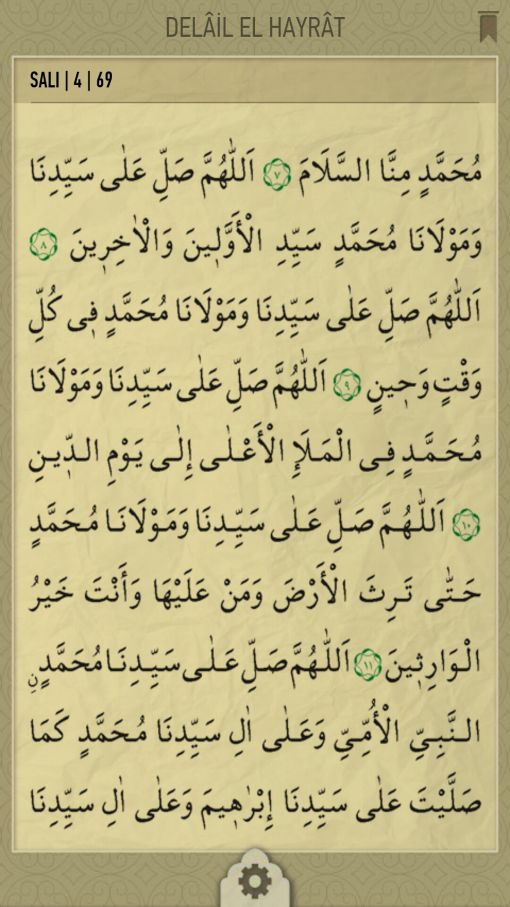 DELÂİL EL HAYRÂT
SALI | 4 | 69
مُحَمَّدٍ مِنَّا السَّلَامَ ٧ اَللّٰهُمَّ صَلِّ عَلٰى سَيِّدِنَا
وَمَوْلَانَا مُحَمَّدٍ سَيِّدِ الْأَوَّلِينَ وَالْاٰخِرِينَ ٨
اَللّٰهُمَّ صَلِّ عَلٰى سَيِّدِنَا وَمَوْلَانَا مُحَمَّدٍ فِى كُلِّ
وَقْتٍ وَحِينٍ ٩ اَللّٰهُمَّ صَلِّ عَلٰى سَيِّدِنَا وَمَوْلَانَا
مُحَمَّدٍ فِى الْمَلَإِ الْأَعْلٰى إِلٰى يَوْمِ الدِّينِ
١٠ اَللّٰهُمَّ صَلِّ عَلٰى سَيِّدِنَا وَمَوْلَانَا مُحَمَّدٍ
حَتّٰى تَرِثَ الْأَرْضَ وَمَنْ عَلَيْهَا وَأَنْتَ خَيْرُ
الْوَارِثِينَ ١١ اَللّٰهُمَّ صَلِّ عَلٰى سَيِّدِنَا مُحَمَّدٍنِ
النَّبِيِّ الْأُمِّيِّ وَعَلٰى اٰلِ سَيِّدِنَا مُحَمَّدٍ كَمَا
صَلَّيْتَ عَلٰى سَيِّدِنَا إِبْرٰهِيمَ وَعَلٰى اٰلِ سَيِّدِنَا